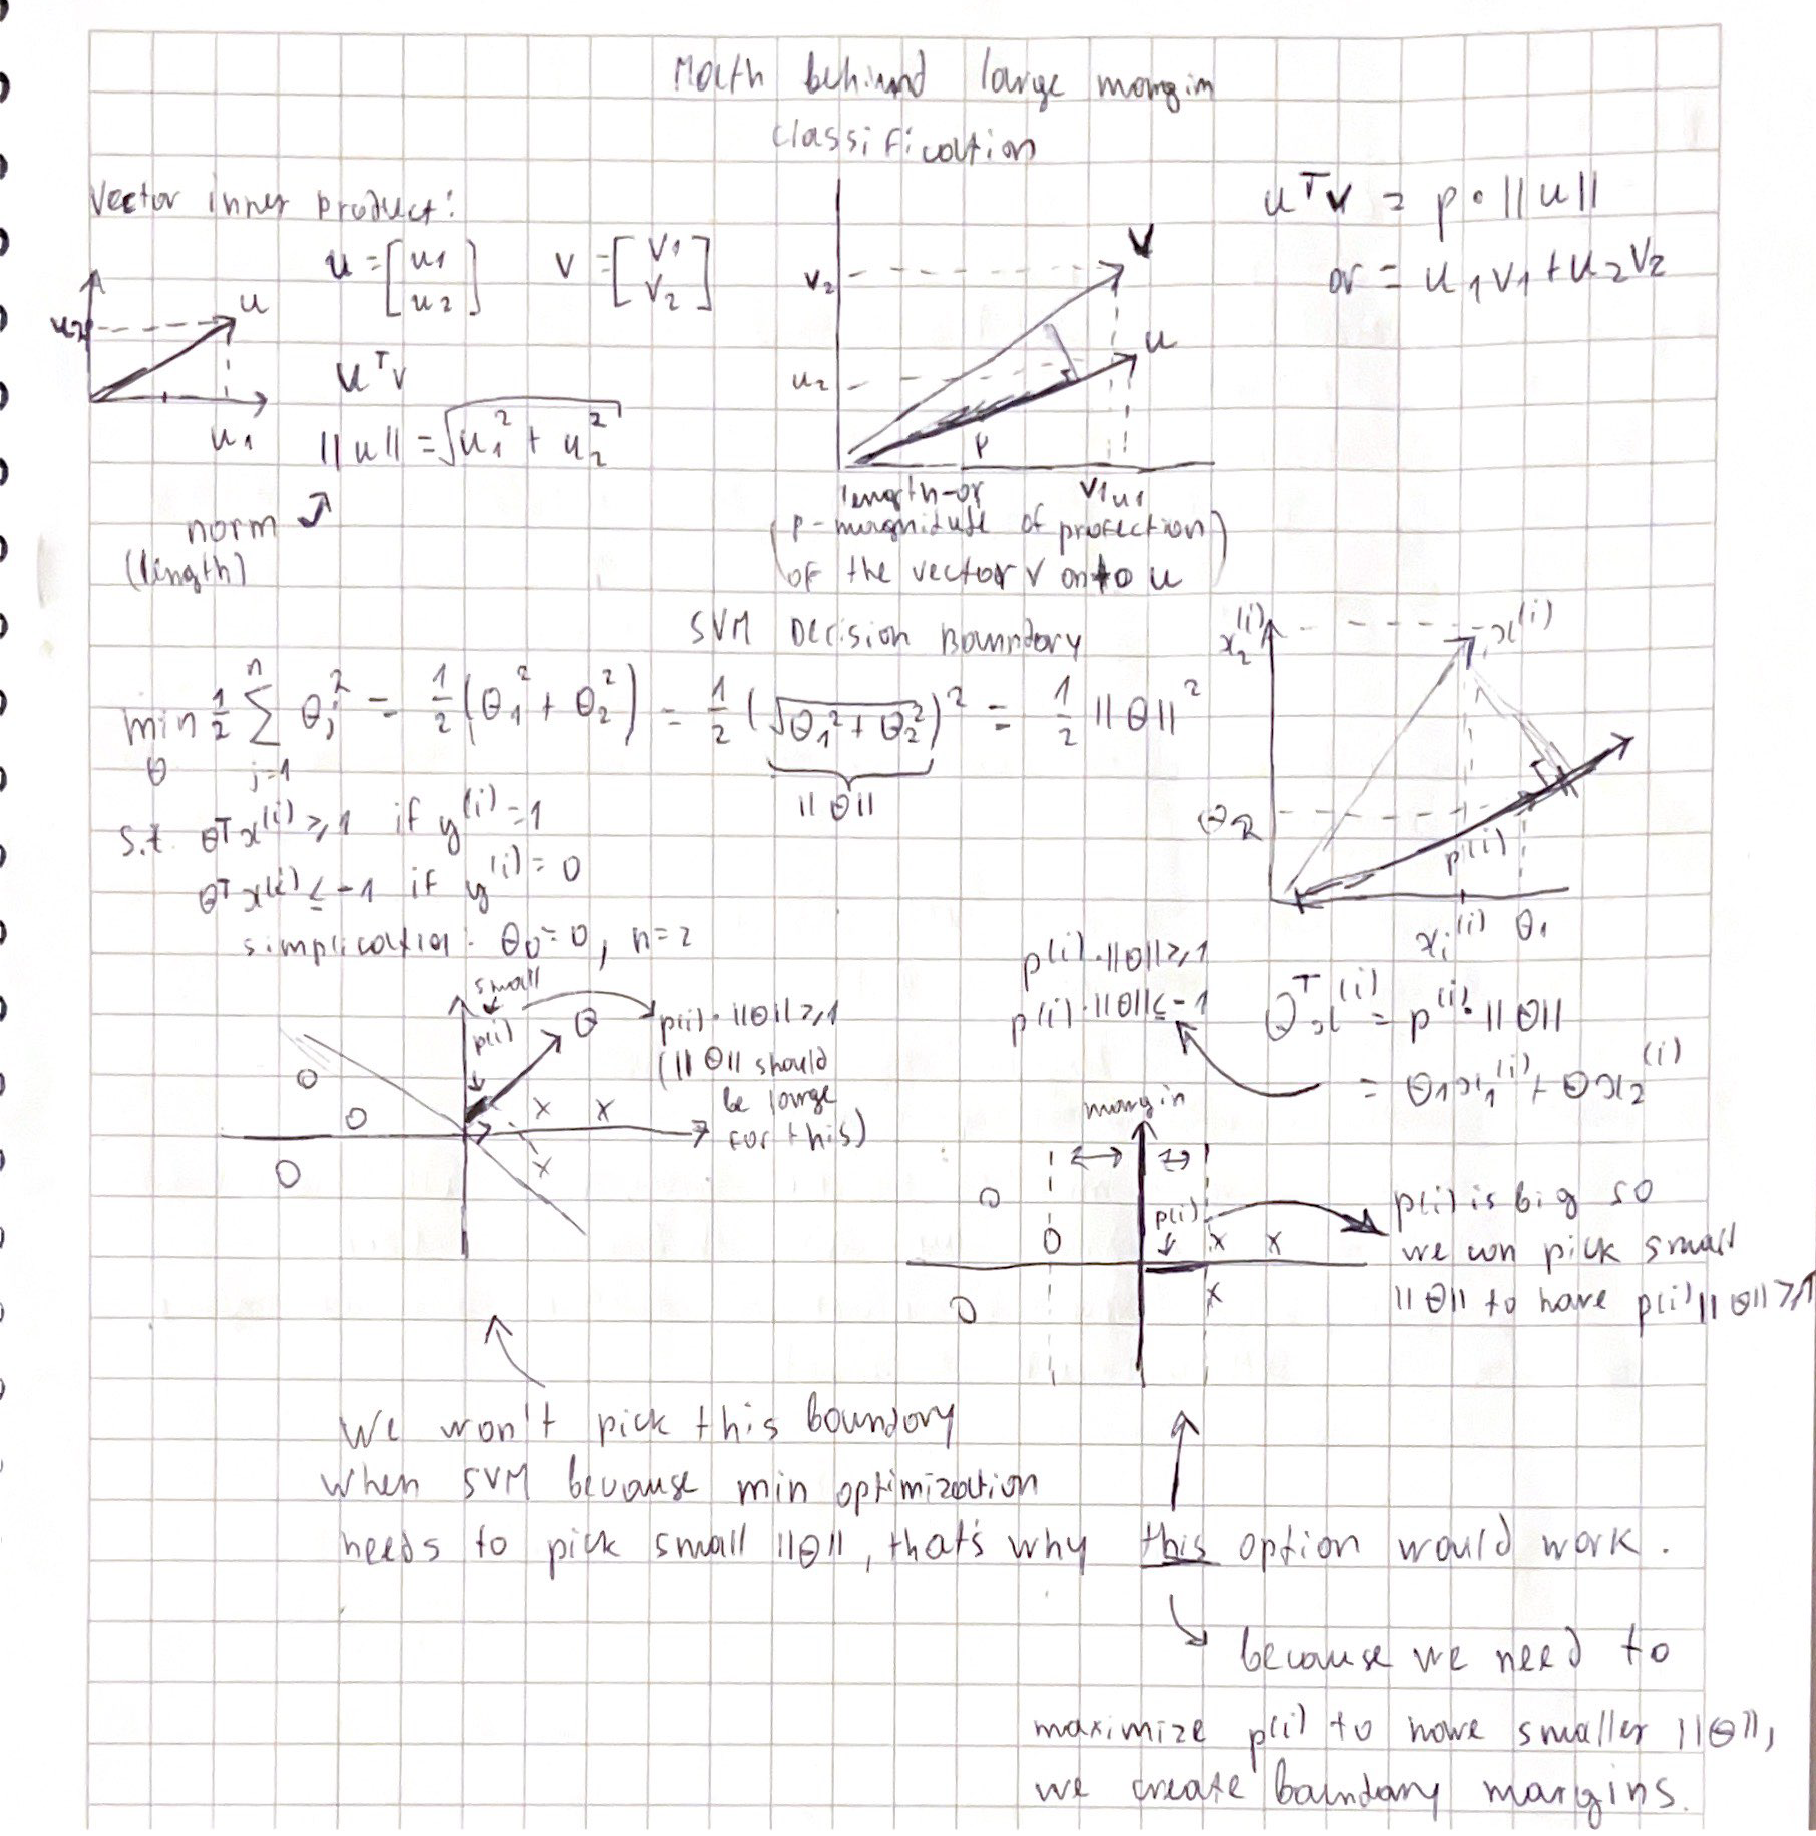 Math behind large margin
classification
Vector inner product:
u = [u1 u2] v = [v1 v2]
u^T v = p · ||u||
or = u1v1 + u2v2
u
u2
u1
u^T v
||u|| = √(u1^2 + u2^2)
norm
(length)
v
v2
u
u2
p
v1 u1
length or
(p - magnitude of projection)
of the vector v onto u
SVM Decision Boundary
min θ 1/2 Σ j=1 n θj^2 = 1/2 (θ1^2 + θ2^2) = 1/2 (√(θ1^2 + θ2^2))^2 = 1/2 ||θ||^2
||θ||
s.t. θ^T x^(i) ≥ 1 if y^(i) = 1
θ^T x^(i) ≤ -1 if y^(i) = 0
simplication: θ0 = 0, n = 2
x2^(i)
x^(i)
θ2
p(i)
xi^(i) θ1
p^(i) · ||θ|| ≥ 1
p^(i) · ||θ|| ≤ -1
θ^T x^(i) = p^(i) · ||θ||
= θ1x1^(i) + θx2^(i)
small
p(i)
θ
p(i) · ||θ|| ≥ 1
(||θ|| should
be large
for this)
margin
p(i)
p(i) is big so
we can pick small
||θ|| to have p(i) ||θ|| ≥ 1
We won't pick this boundary
when SVM because min optimization
needs to pick small ||θ||, that's why this option would work.
because we need to
maximize p(i) to have smaller ||θ||,
we create boundary margins.